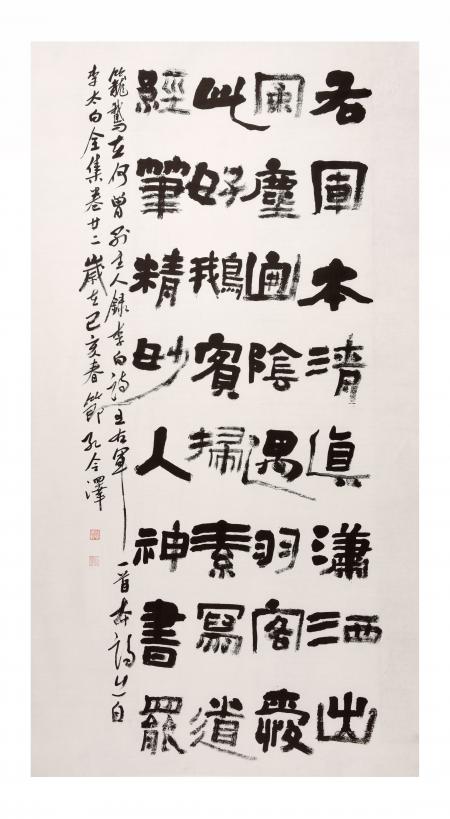 右軍本清真瀟洒出
風塵山陰遇羽客愛
此好鵝賓掃素寫道
經筆精妙入神書罷
籠鵞去何曾別主人錄李白詩王右軍一首本詩出自
李太白全集卷廿二歲在己亥春節孔令澤